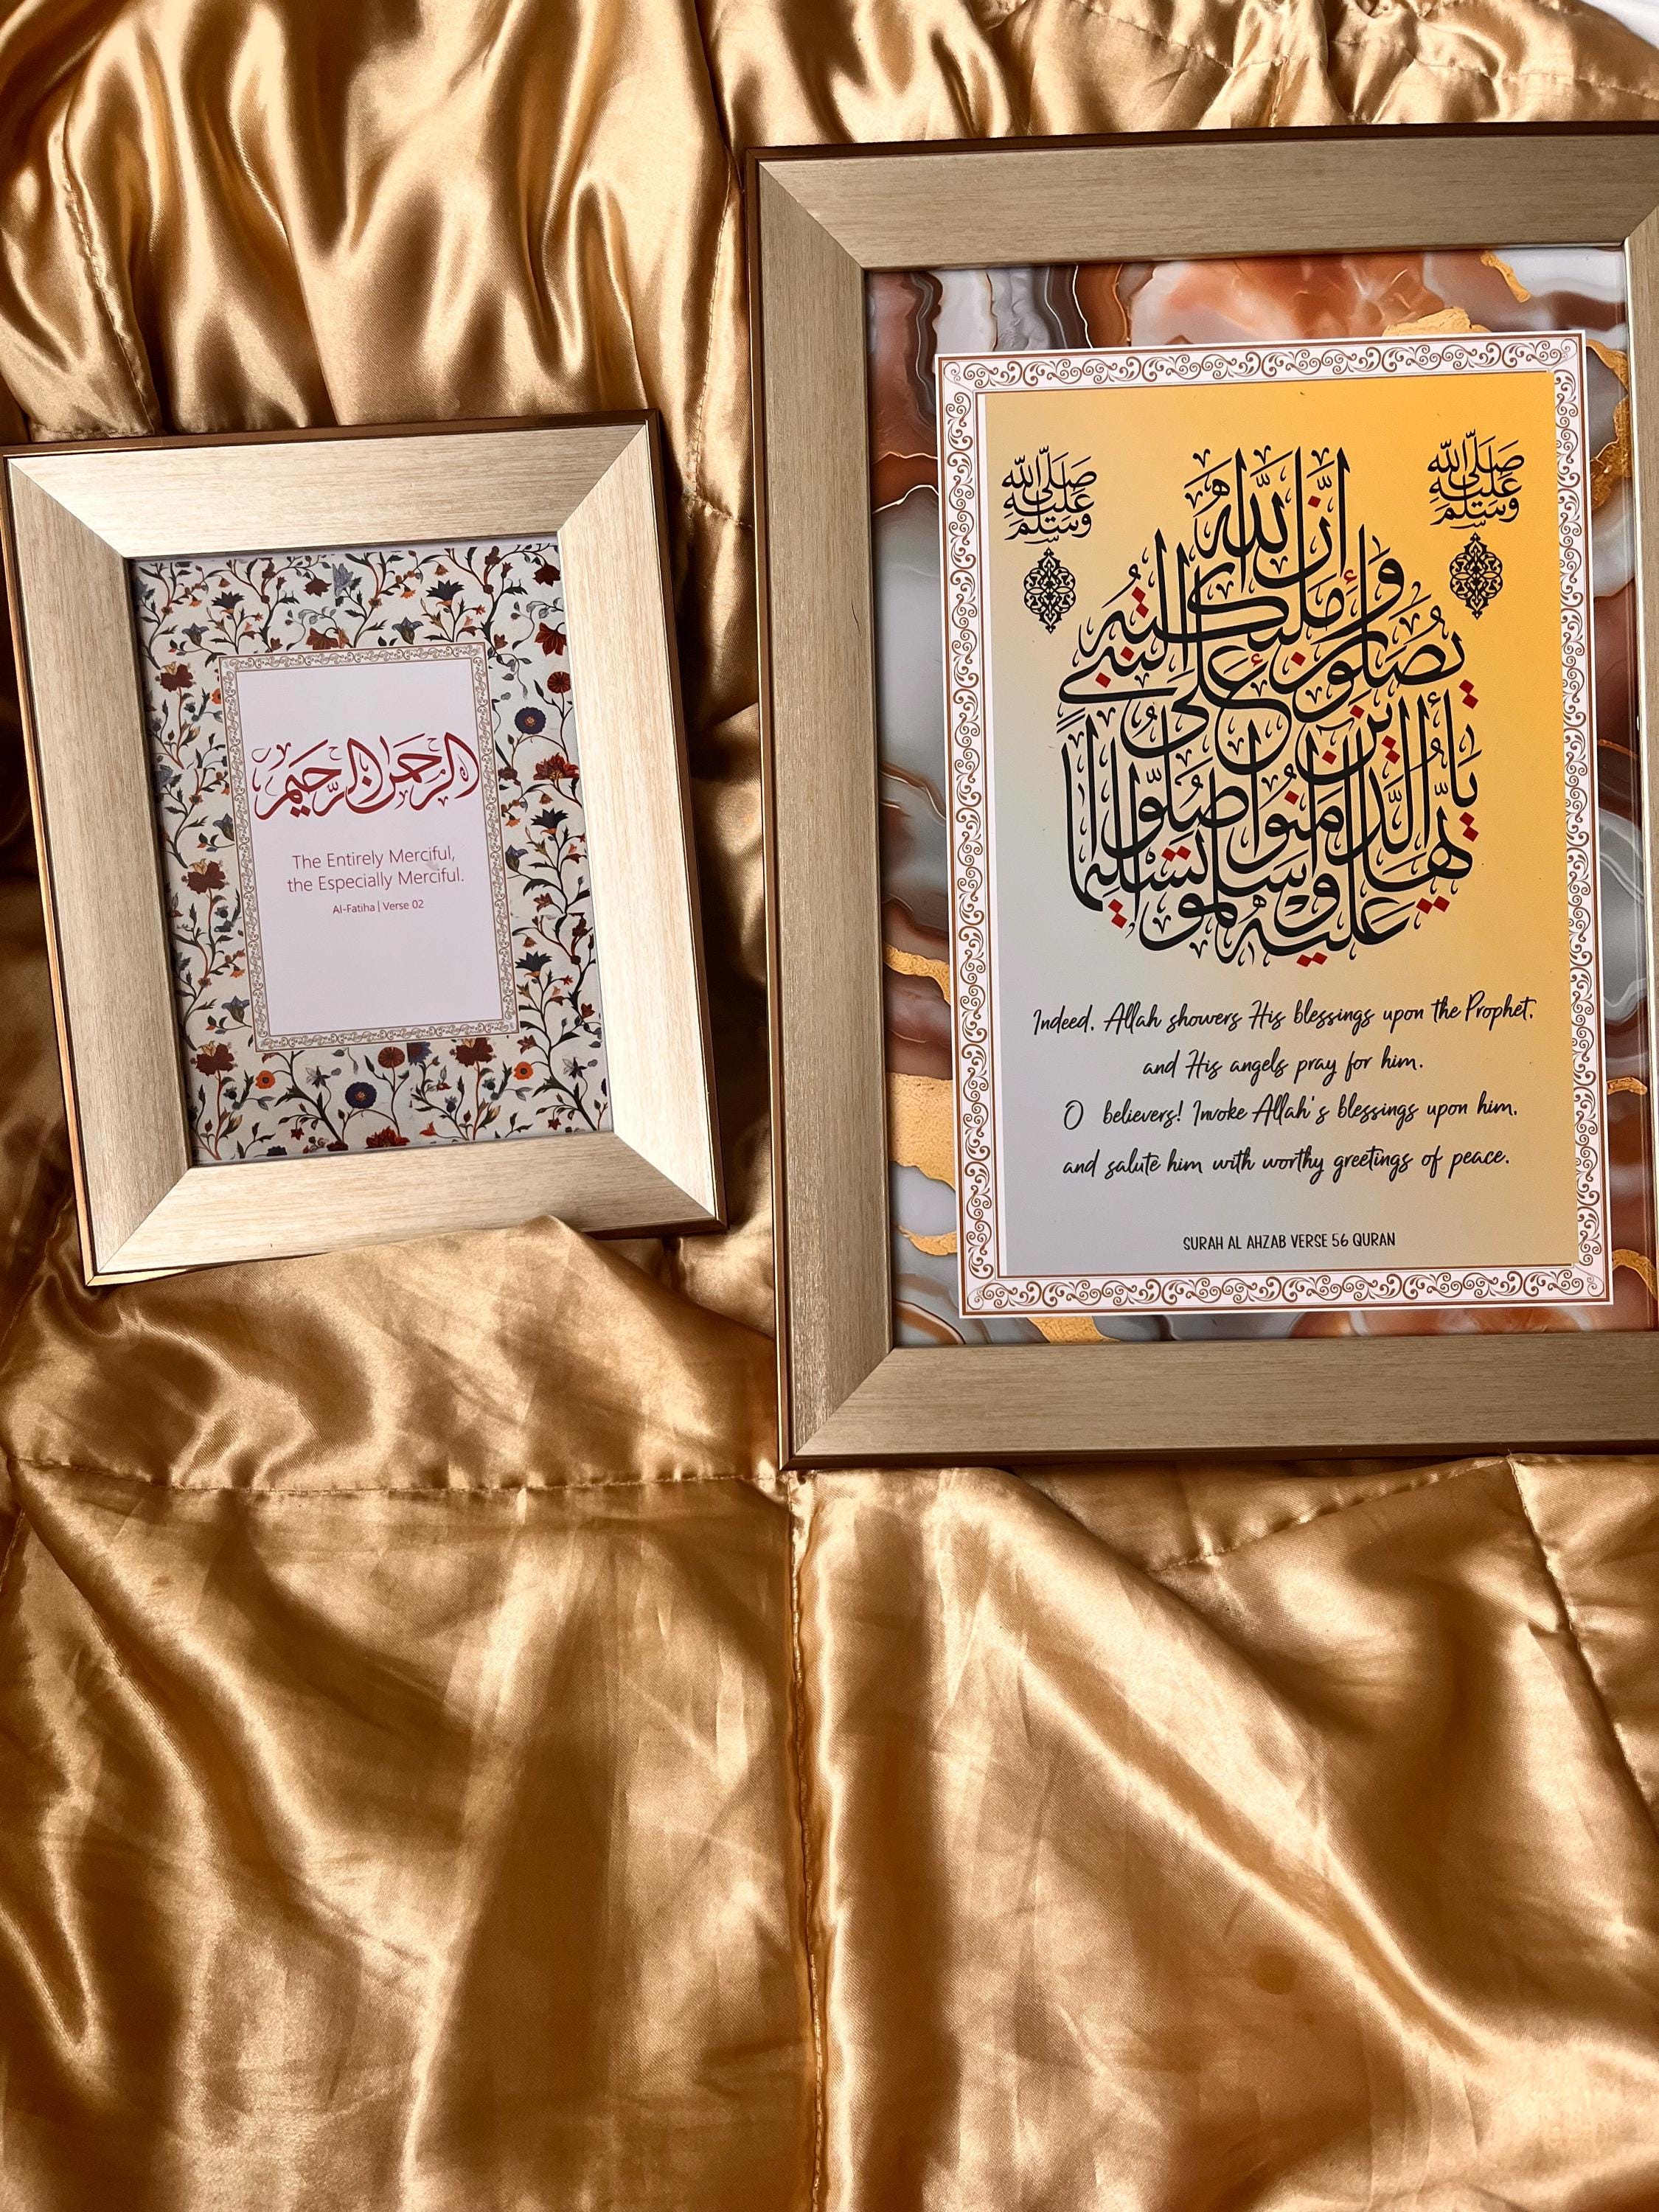 الرحمن الرحيم
The Entirely Merciful,
the Especially Merciful.
Al-Fatiha | Verse 02
صَلَّى اللّٰه
عَلَيْهِ
وَسَلَّمَ
صَلَّى اللّٰه
عَلَيْهِ
وَسَلَّمَ
إِنَّ اللَّهَ
وَمَلَٰئِكَتَهُ
يُصَلُّونَ عَلَى النَّبِيِّ
يَٰأَيُّهَا الَّذِينَ ءَامَنُوا صَلُّوا
عَلَيْهِ وَسَلِّمُوا تَسْلِيمًا
Indeed, Allah showers His blessings upon the Prophet,
and His angels pray for him.
O believers! Invoke Allah's blessings upon him,
and salute him with worthy greetings of peace.
SURAH AL AHZAB VERSE 56 QURAN